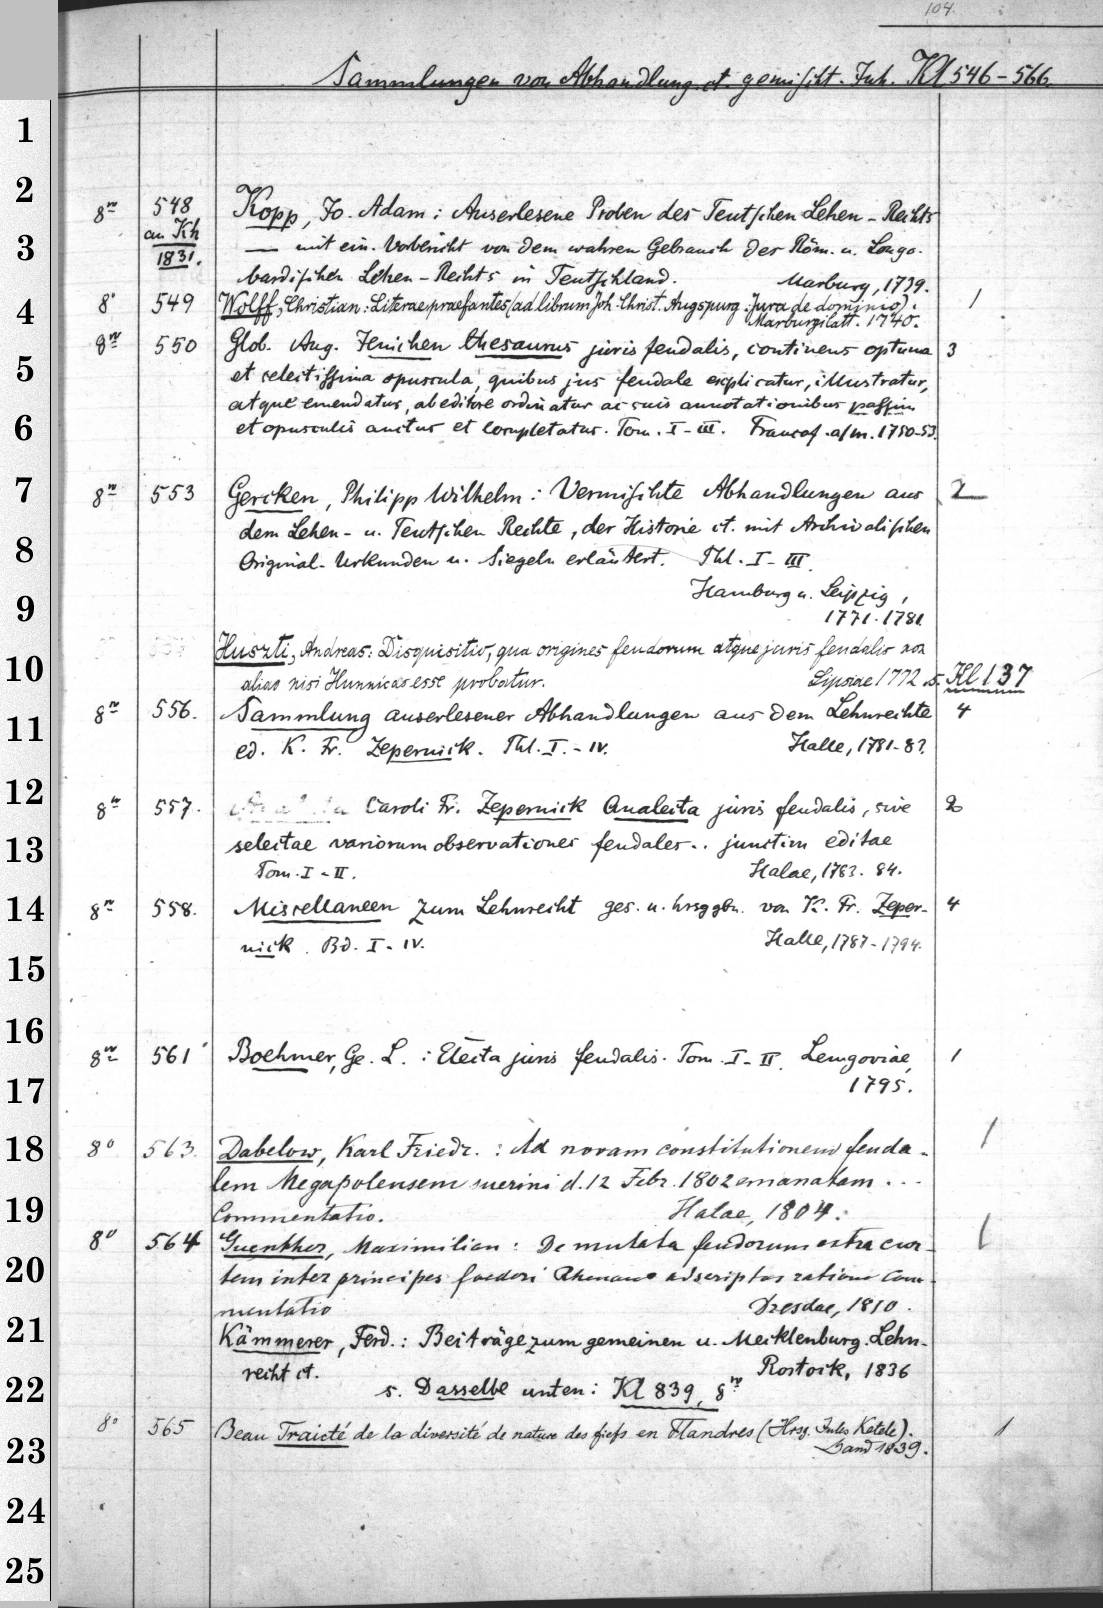 104.
Sammlungen von Abhandlung. et. gemischt. Inh. Kl 546-566.
8º 548 Kopp, Jo. Adam: Auserlesene Proben des Teutschen Lehen-Rechts
an Kh — mit ein. Vorbericht von dem wahren Gebrauch der Röm. u. Longo-
1831. bardischen Lehen-Rechts in Teutschland. Marburg, 1739.
8º 549 Wolff, Christian: Literae praefantes (ad librum Joh. Christ. Augspurg: Jura de dominio). 1
Marburgi Catt. 1740.
8º 550 Glob. Aug. Jenichen thesaurus juris feudalis, continens optuma 3
et selectissima opuscula, quibus jus feudale explicatur, illustratur,
atque emendatur, ab editore ordinatur ac suis annotationibus passim
et opusculis auctus et completatus. Tom. I-III. Francof. a/m. 1750-53.
8º 553 Gercken, Philipp Wilhelm: Vermischte Abhandlungen aus 2
dem Lehen- u. Teutschen Rechte, der Historie et. mit Archivalischen
Original-Urkunden u. Siegeln erläutert. Thl. I-III.
Hamburg u. Leipzig,
1771-1781
Huszti, Andreas: Disquisitio, qua origines feudorum atque juris feudalis non
alias nisi Hunnicas esse probatur. Lipsiae 1772 s. Kl 137
8º 556. Sammlung auserlesener Abhandlungen aus dem Lehnrechte 4
ed. K. Fr. Zepernick. Thl. I.-IV. Halle, 1781-83.
8º 557. Caroli Fr. Zepernick Analecta juris feudalis, sive 2
selectae variorum observationes feudales.. junctim editae
Tom. I-II. Halae, 1783. 84.
8º 558. Miscellaneen zum Lehnrecht ges. u. hrsggbn. von K. Fr. Zeper- 4
nick. Bd. I-IV. Halle, 1787-1794.
8º 561 Boehmer, Ge. L.: Electa juris feudalis. Tom. I-II. Lemgoviae, 1
1795.
8º 563. Dabelow, Karl Friedr.: Ad novam constitutionem feuda- 1
lem Megapolensem suerini d. 12 Febr. 1802 emanatam...
Commentatio. Halae, 1804.
8º 564 Guenther, Maximilian: De mutata feudorum extra cur- 1
tem inter principes foederi Rhenano adscriptos ratione com-
mentatio Dresdae, 1810.
Kämmerer, Ferd.: Beiträge zum gemeinen u. Mecklenburg. Lehn-
recht et. Rostock, 1836
s. Dasselbe unten: Kl 839, 8º
8º 565 Beau Traicté de la diversité de nature des fiefs en Flandres (Hrsg. Jules Ketele). 1
Gand 1839.
1
2
3
4
5
6
7
8
9
10
11
12
13
14
15
16
17
18
19
20
21
22
23
24
25